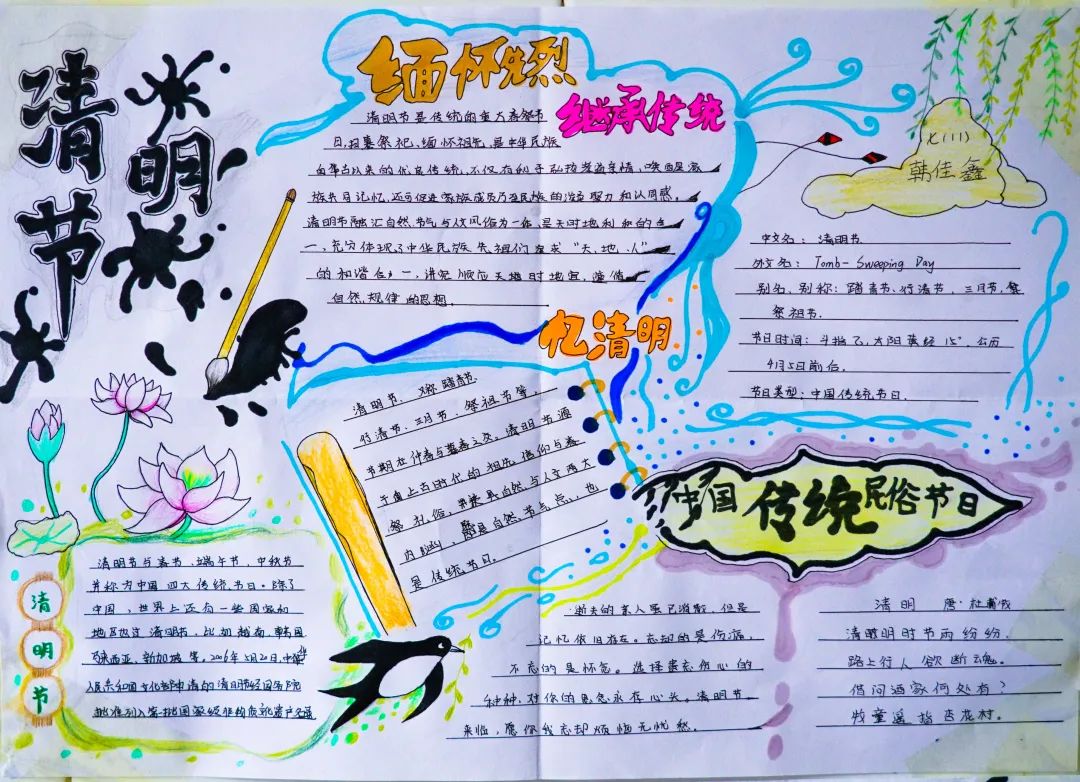 清明节
缅怀先烈
继承传统
清明节是传统的重大春祭节
日,扫墓祭祀、缅怀祖先,是中华民族
自古以来的优良传统,不仅有利于弘扬孝道亲情、唤醒家
族共同记忆,还可促进家族成员乃至民族的凝聚力和认同感。
清明节融汇自然节气与人文风俗为一体,是天时地利人和的合
一,充分体现了中华民族先祖们追求“天、地、人”
的和谐合一,讲究顺应天时地宜、遵循
自然规律的思想。
七(11)
韩佳鑫
中文名:清明节
外文名:Tomb-Sweeping Day
别名、别称:踏青节、行清节、三月节、祭
祭祖节.
节日时间:斗指乙,太阳黄经15°,公历
4月5日前后.
节日类型:中国传统节日.
忆清明
清明节,又称踏青节、
行清节、三月节、祭祖节等,
节期在仲春与暮春之交。清明节源
于自上古时代的祖先信仰与春
祭礼俗,兼具自然与人文两大
内涵,既是自然节气点,也
是传统节日。
中国传统民俗节日
清明节
清明节与春节、端午节、中秋节
并称为中国四大传统节日。除了
中国,世界上还有一些国家和
地区也过清明节,比如越南、韩国
马来西亚、新加坡等。2006年5月20日,中华
人民共和国文化部申请的清明节经国务院
批准列入第一批国家级非物质文化遗产名录
逝去的亲人虽已消散,但是
记忆依旧存在。忘却的是伤痛,
不忘的是怀念。选择丢忘伤心的
种种,对你的思念永存心头。清明节
来临,愿你我忘却烦恼无忧愁。
清明 唐·杜牧
清明时节雨纷纷,
路上行人欲断魂。
借问酒家何处有?
牧童遥指杏花村。